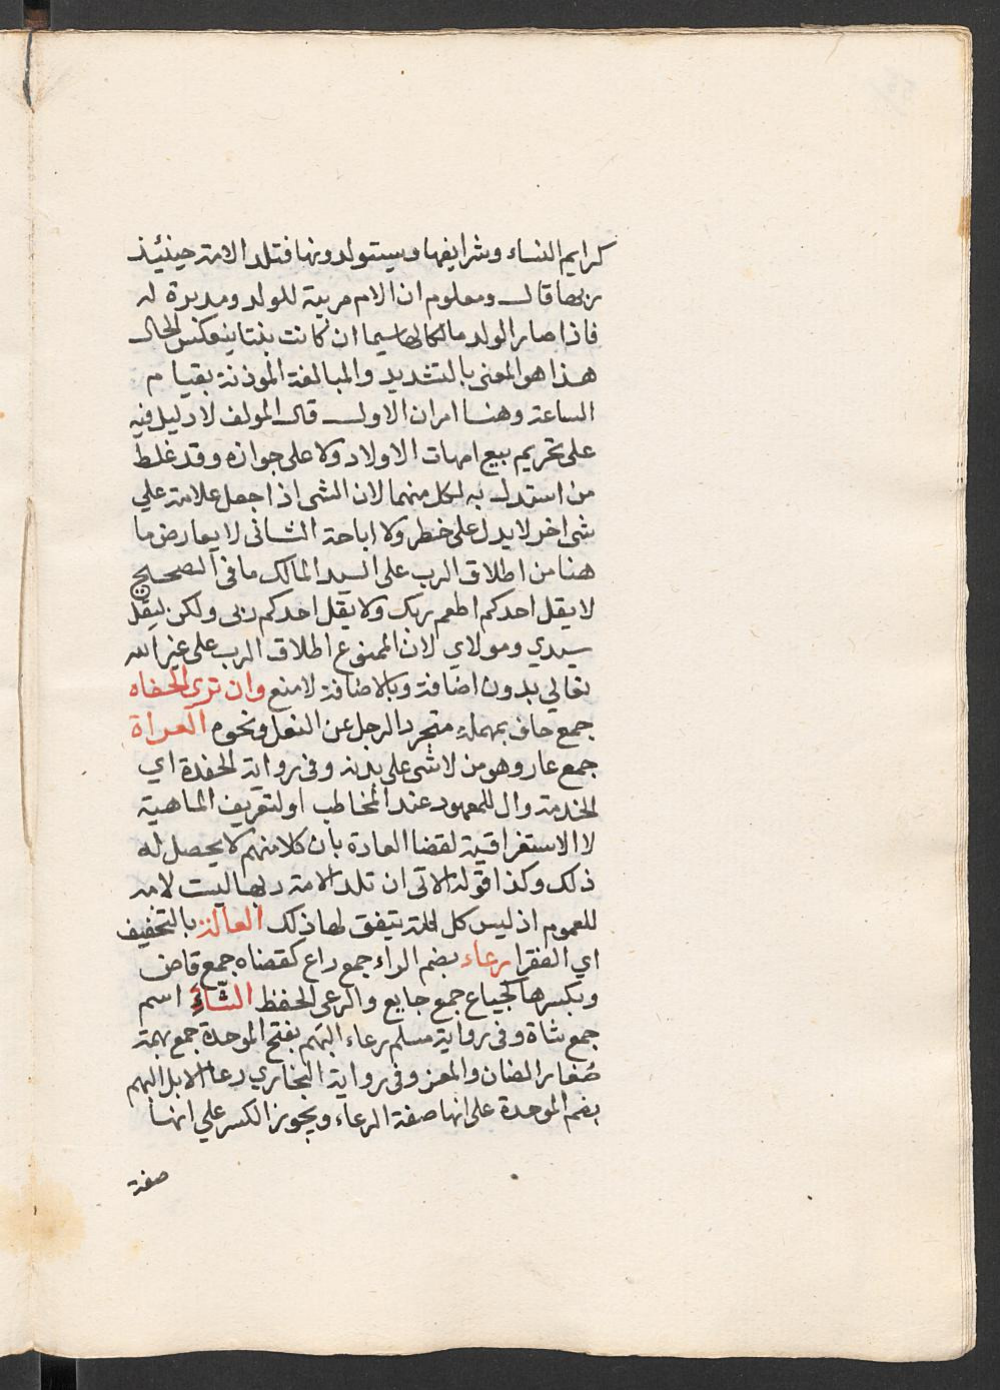 كرايم النساء وشرايفها ويستولدونها فتلد الامة حينئيذ
ربها قال ومعلوم ان الام مربية للولد ومدبرة له
فاذا صار الولد مالكا لها سيما ان كانت بنتا ينعكس الحال
هذا هو المعنى بالتشديد والمبالغة الموذنة بقيام
الساعة وهنا امران الاول قال المولف لا دليل فيه
على تحريم بيع امهات الاولاد ولا على جوازه وقد غلط
من استدل به لكل منهما لان الشى اذا جعل علامة علي
شى اخر لا يدل على خطر ولا اباحة الثانى لا يعارض ما
هنا من اطلاق الرب على السيد المالك ما فى الصحيح
لا يقل احدكم اطعم ربك ولا يقل احدكم ربى ولكن ليقل
سيدي ومولاي لان الممنوع اطلاق الرب على غير الله
تعالي بدون اضافة وبالاضافة لا منع وان ترى الحفاه
جمع حاف بمهملة متجرد الرجل عن النعل ونحوه العراة
جمع عار وهو من لا شى على بدنه وفى رواية الحفدة اي
الخدمة وال للمعهود عند المخاطب او لتعريف الماهية
لا الاستغراقية لقضا العادة بان كلا منهم لا يحصل له
ذلك وكذا قوله الاتى ان تلد الامة ربها ليست لامه
للعموم اذ ليس كل امة يتفق لها ذلك العالة بالتخفيف
اي الفقرا رعاء بضم الراء جمع راع كقضاه جمع قاض
وبكسرها كجياع جمع جايع والرعى الحفظ الشاء اسم
جمع شاة وفى رواية مسلم رعاء البهم بفتح الموحدة جمع بهمة
صغار الضان والمعز وفى رواية البخاري رعا الابل البهم
بضم الموحدة على انها صفة الرعاء ويجوز الكسر علي انها
صفة